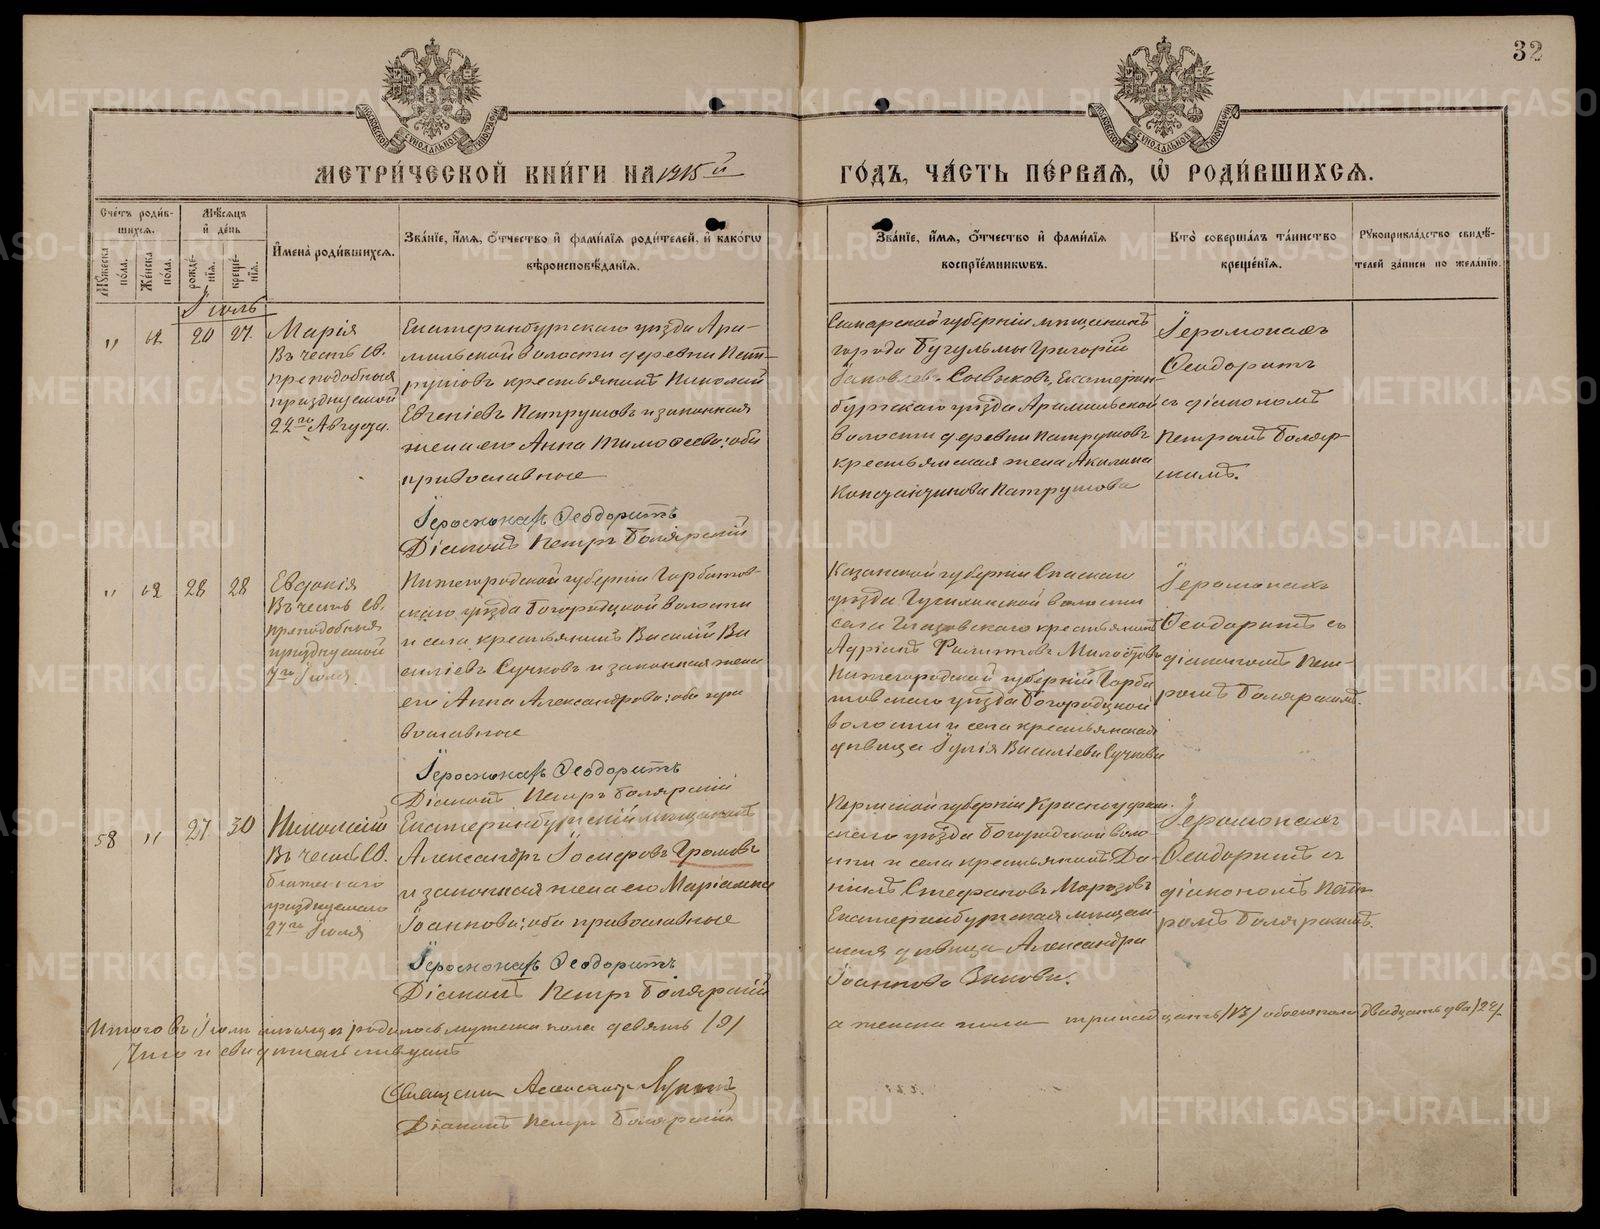 32
МЕТРИ́ЧЕСКОЙ КНИ́ГИ НА 1915й ГОДЪ, ЧА́СТЬ ПЕ́РВАѦ, Ѽ РОДИ́ВШИХСѦ.
Сче́тъ роди́вшихсѧ.
Му́жеска по́ла.
Же́нска по́ла.
Мѣ́сѧцъ и҆ де́нь
рожде́нїѧ.
креще́нїѧ.
И҆мена̀ роди́вшихсѧ.
Зва́нїе, и҆́мѧ, ѻ҆́тчество и҆ фами́лїѧ роди́телей, и҆ како́гѡ
вѣроисповѣ́данїѧ.
Зва́нїе, и҆́мѧ, ѻ҆́тчество и҆ фами́лїѧ
воспрїе́мникѡвъ.
Кто̀ соверша́лъ та́инство
креще́нїѧ.
Рукоприкла́дство свидѣ́телей за́писи по жела́нїю.
Іюль
" 20 27.
Марія
Въ честь св.
преподобныя
празднуемой
22го Августа.
Екатеринбургскаго уѣзда Ара-
мильской волости деревни Пат-
рушовъ крестьянинъ Николай
Евгеніевъ Патрушовъ и законная
жена его Анна Тимофеева; оба
православные
Іеромонахъ Ѳеодоритъ
Діаконъ Петръ Боляркскій
Самарской губерніи мѣщанинъ
города Бугульмы Григорій
Іаковлевъ Екатерин-
бургскаго уѣзда Арамильской
волости деревни Патрушовъ
крестьянская жена Акилина
Константинова Патрушова
Іеромонахъ
Ѳеодоритъ
съ діакономъ
Петромъ Боляр-
скимъ.
" 28 28
Евдокія
Въ честь св.
преподобныя
празднуемой
7го Іюля.
Нижегородской губерніи Горбатов-
скаго уѣзда Богородской волости
и села крестьянинъ Василій Ва
силіевъ Сучковъ и законная жена
его Анна Александрова; оба пра
вославные
Іеромонахъ Ѳеодоритъ
Діаконъ Петръ Болярскій
Казанской губерніи Спаскаго
уѣзда волости
села крестьянинъ
Адріанъ
Нижегородской губерніи Горба
товскаго уѣзда Богородской
волости и села крестьянская
дѣвица Іулія Василіева Сучкова
Іеромонахъ
Ѳеодоритъ съ
діакономъ Пет-
ромъ Болярскимъ.
58 " 27 30
Николай
Въ честь св.
блаженнаго
празднуемаго
27го Іюля
Екатеринбургскій мѣщанинъ
Александръ Громовъ
и законная жена его Маріамна
Іоаннова; оба православные
Іеромонахъ Ѳеодоритъ
Діаконъ Петръ Болярскій
Пермской губерніи Красноуфим
скаго уѣзда Богородской воло-
сти и села крестьянинъ Да-
ніилъ Стефановъ Морозовъ
Екатеринбургская мѣщан-
ская дѣвица Александра
Іоаннова Зыкова.
Іеромонахъ
Ѳеодоритъ съ
діакономъ Пет
ромъ Болярскимъ.
Итого въ Іюлѣ мѣсяцѣ родилось мужеска пола девять /9/ а женска пола тринадцать /13/ обоего пола двадцать два /22/
Что и свидѣтельствуемъ
Священникъ Александръ
Діаконъ Петръ Болярскій
METRIKI.GASO-URAL.RU